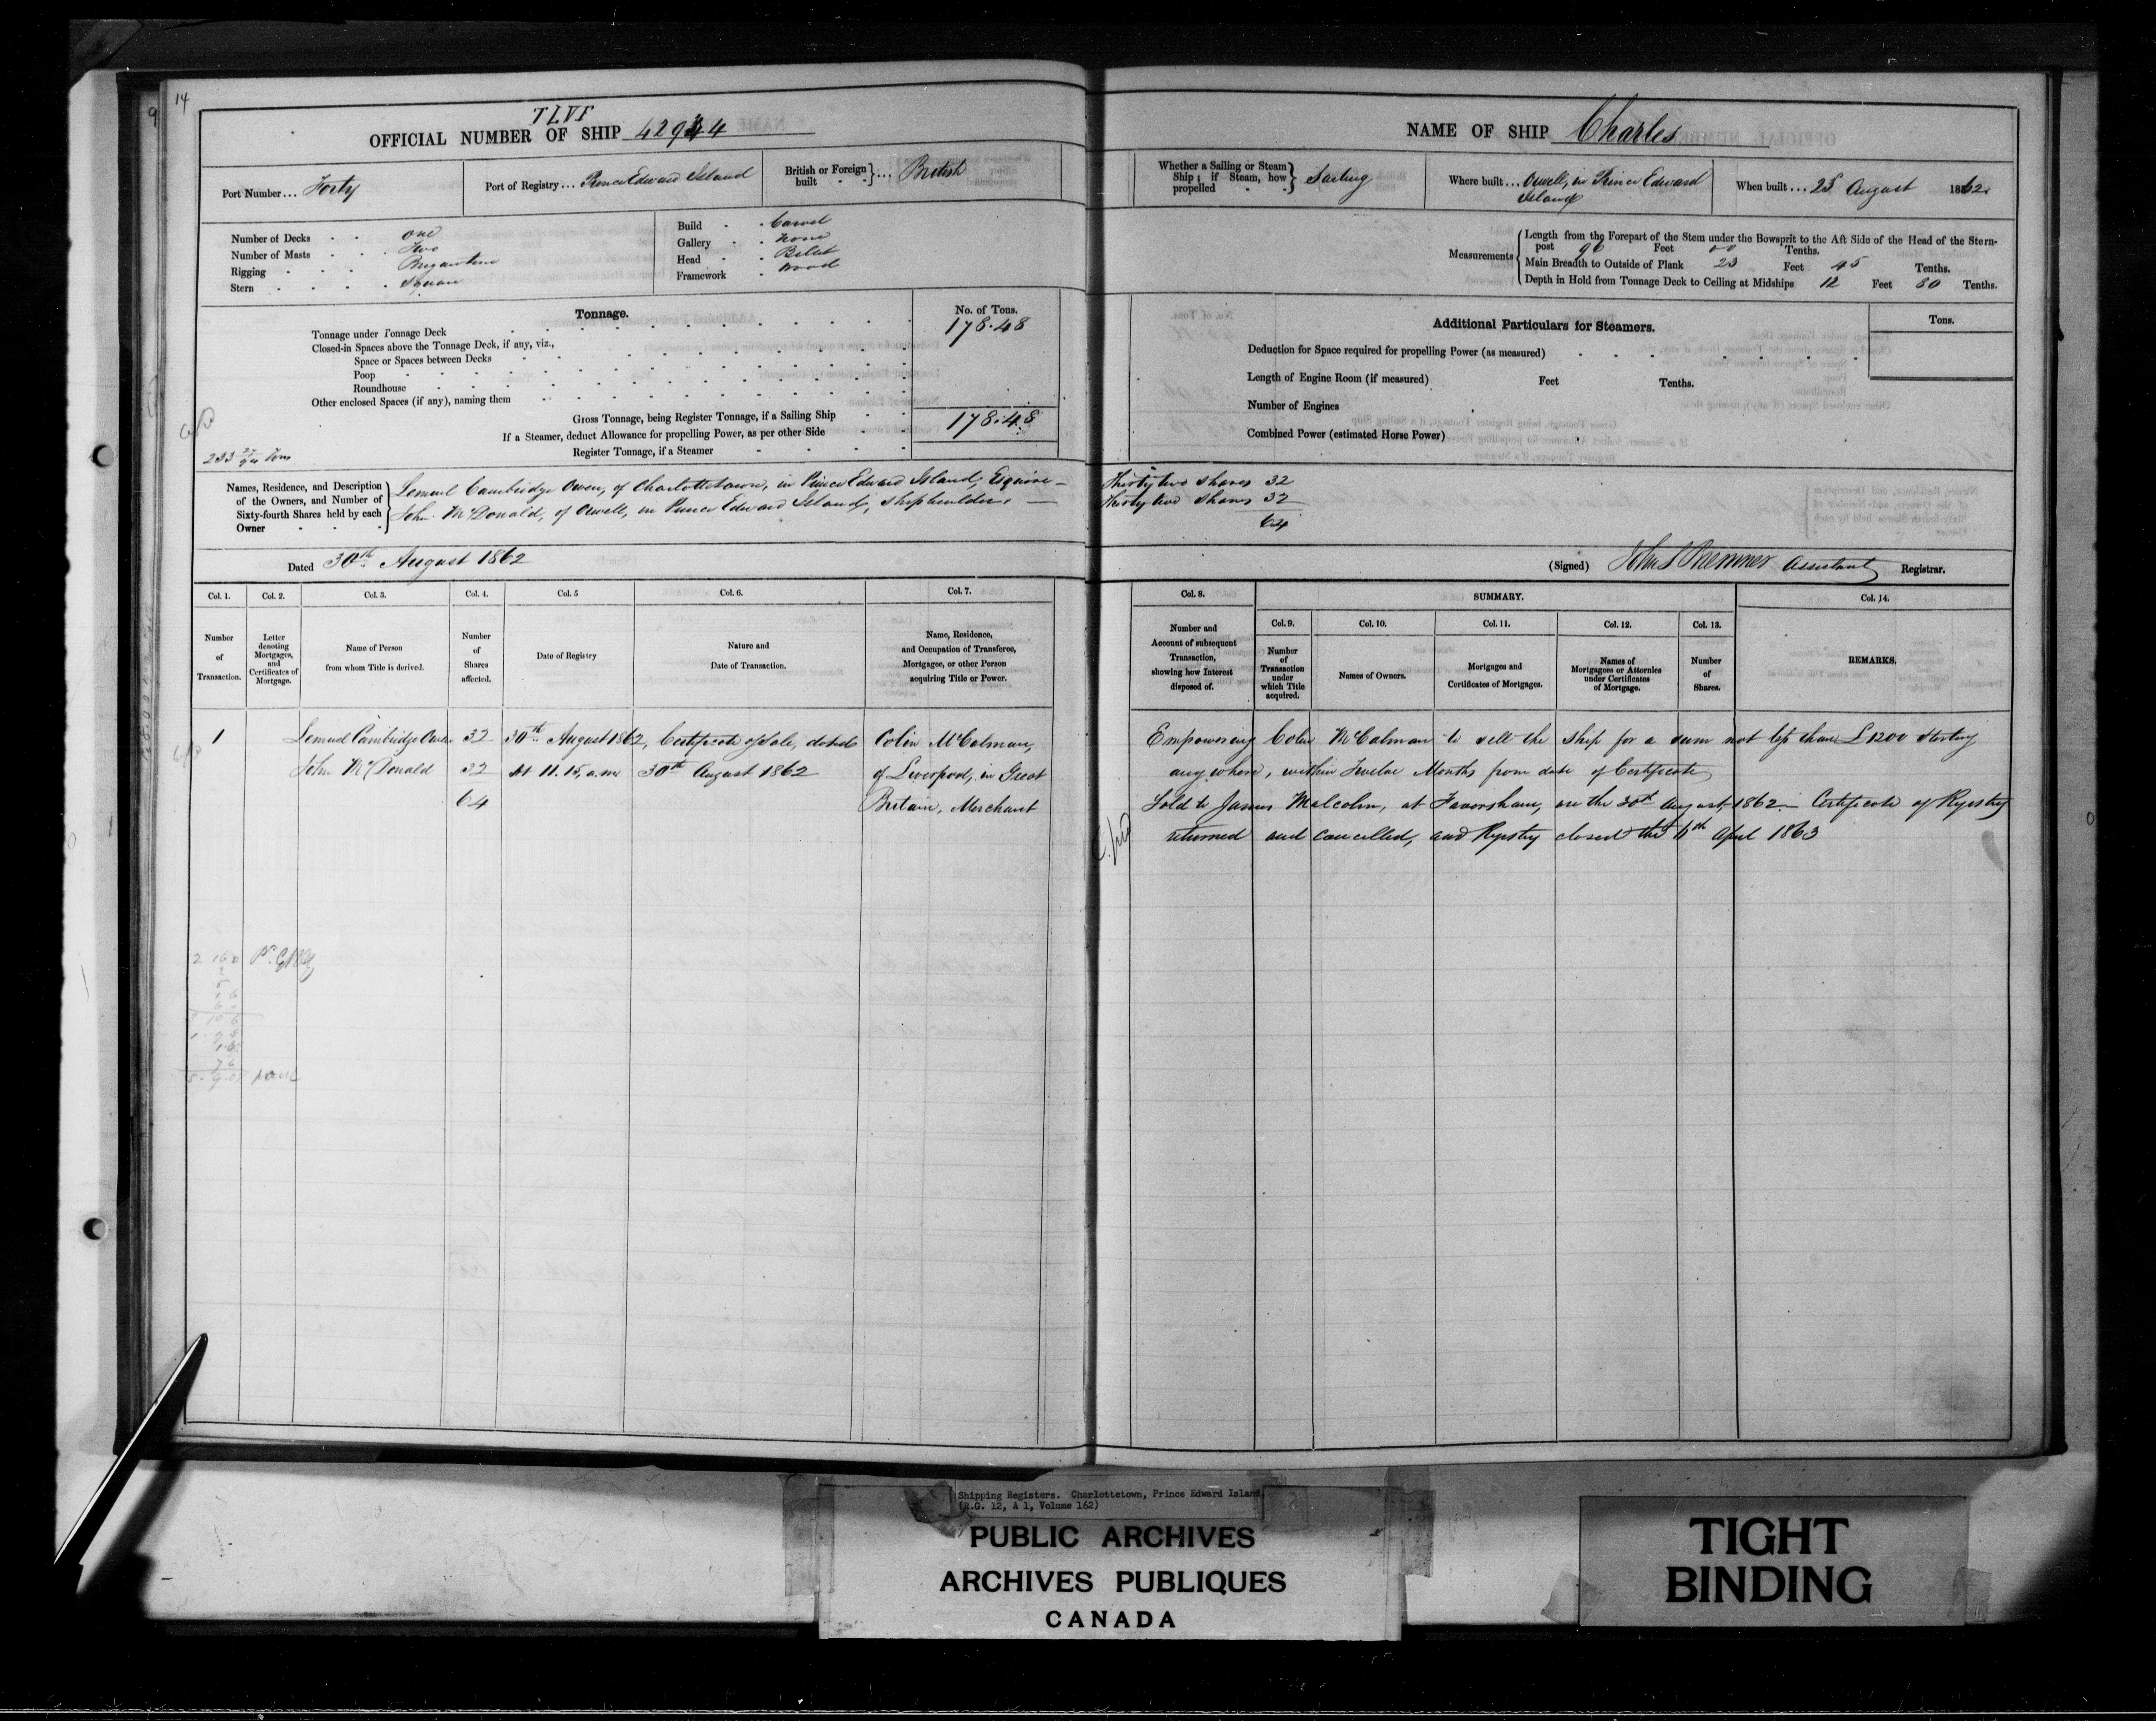 14
TLVS
OFFICIAL NUMBER OF SHIP 42944
Port Number... Forty
Port of Registry... Prince Edward Island
British or Foreign built } ... British
Number of Decks . . one
Number of Masts . . Two
Rigging . . . Brigantine
Stern . . . . Square
Build . . Carvel
Gallery . . None
Head . . Billet
Framework . Wood
Tonnage.
No. of Tons.
Tonnage under Tonnage Deck 178.48
Closed-in Spaces above the Tonnage Deck, if any, viz.,
Space or Spaces between Decks
Poop
Roundhouse
Other enclosed Spaces (if any), naming them
Gross Tonnage, being Register Tonnage, if a Sailing Ship 178.48
If a Steamer, deduct Allowance for propelling Power, as per other Side
Register Tonnage, if a Steamer
Names, Residence, and Description
of the Owners, and Number of
Sixty-fourth Shares held by each
Owner
Lemuel Cambridge Owen, of Charlottetown, in Prince Edward Island, Esquire —
John McDonald, of Orwell, in Prince Edward Island, shipbuilder. —
Dated 30th August 1862
Col. 1.
Number of Transaction.
Col. 2.
Letter denoting Mortgages, and Certificates of Mortgage.
Col. 3.
Name of Person from whom Title is derived.
Col. 4.
Number of Shares affected.
Col. 5
Date of Registry
Col. 6.
Nature and Date of Transaction.
Col. 7.
Name, Residence, and Occupation of Transferee, Mortgagee, or other Person acquiring Title or Power.
1 Lemuel Cambridge Owen 32 30th August 1862, Certificate of Sale, dated Colin McCalman,
John McDonald 32 At 11.15, a.m. 30th August 1862 of Liverpool, in Great
64 Britain, Merchant
NAME OF SHIP Charles
Whether a Sailing or Steam Ship; if Steam, how propelled } Sailing
Where built... Orwell, in Prince Edward Island
When built... 25 August 1862
Measurements
Length from the Forepart of the Stem under the Bowsprit to the Aft Side of the Head of the Stern-
post 96 Feet Tenths.
Main Breadth to Outside of Plank 23 Feet 45 Tenths.
Depth in Hold from Tonnage Deck to Ceiling at Midships 12 Feet 80 Tenths.
Additional Particulars for Steamers.
Tons.
Deduction for Space required for propelling Power (as measured)
Length of Engine Room (if measured) Feet Tenths.
Number of Engines
Combined Power (estimated Horse Power)
Thirty two shares 32
Thirty two shares 32
64
(Signed) Assistant Registrar.
Col. 8.
Number and Account of subsequent Transaction, showing how Interest disposed of.
SUMMARY.
Col. 9.
Number of Transaction under which Title acquired.
Col. 10.
Names of Owners.
Col. 11.
Mortgages and Certificates of Mortgages.
Col. 12.
Names of Mortgagees or Attornies under Certificates of Mortgage.
Col. 13.
Number of Shares.
Col. 14.
REMARKS.
Empowering Colin McCalman to sell the ship for a sum not less than £1200 Sterling
any where, within Twelve Months from date of Certificate
Sold to James Malcolm, at Faversham, on the 30th August, 1862 — Certificate of Registry
returned and cancelled, and Registry closed the April 1863
Shipping Registers. Charlottetown, Prince Edward Island
(R.G. 12, A 1, Volume 162)
PUBLIC ARCHIVES
ARCHIVES PUBLIQUES
CANADA
TIGHT
BINDING